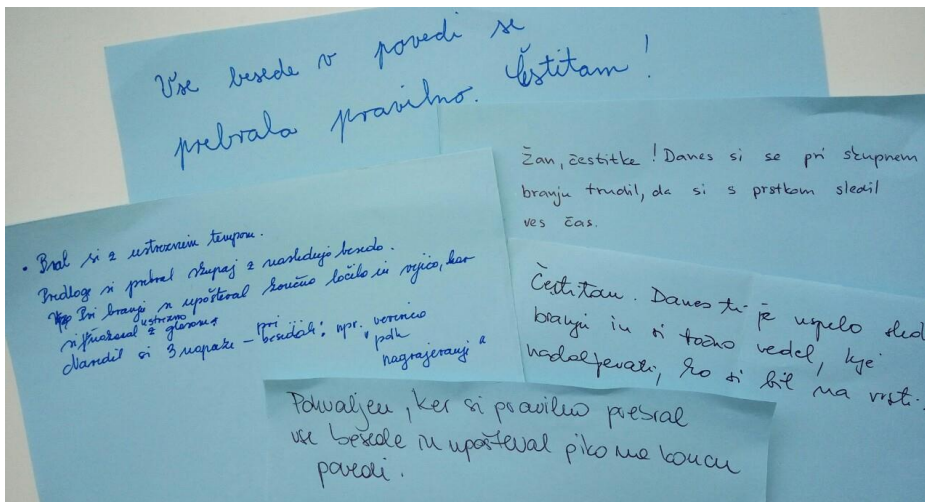 Vse besede v povedi se
prebrala pravilno. Čestitam!
Žan, čestitke! Danes si se pri skupnem
branju trudil, da si s prstkom sledil
ves čas.
• Bral si z ustreznim tempom.
Predloge si prebral skupaj z naslednjo besedo.
Pri branju si upošteval končno ločilo in vejico, kar
si z glasom ustrezno
Naredil si 3 napake – pri besedah: npr. verenico
"pdk
nagrajevanji"
Čestitam. Danes ti je uspelo sled
branju in si točno vedel, kje
nadaljevati, ko si bil na vrsti.
Pohvaljen, ker si pravilno prebral
vse besede in upošteval piko na koncu
povedi.